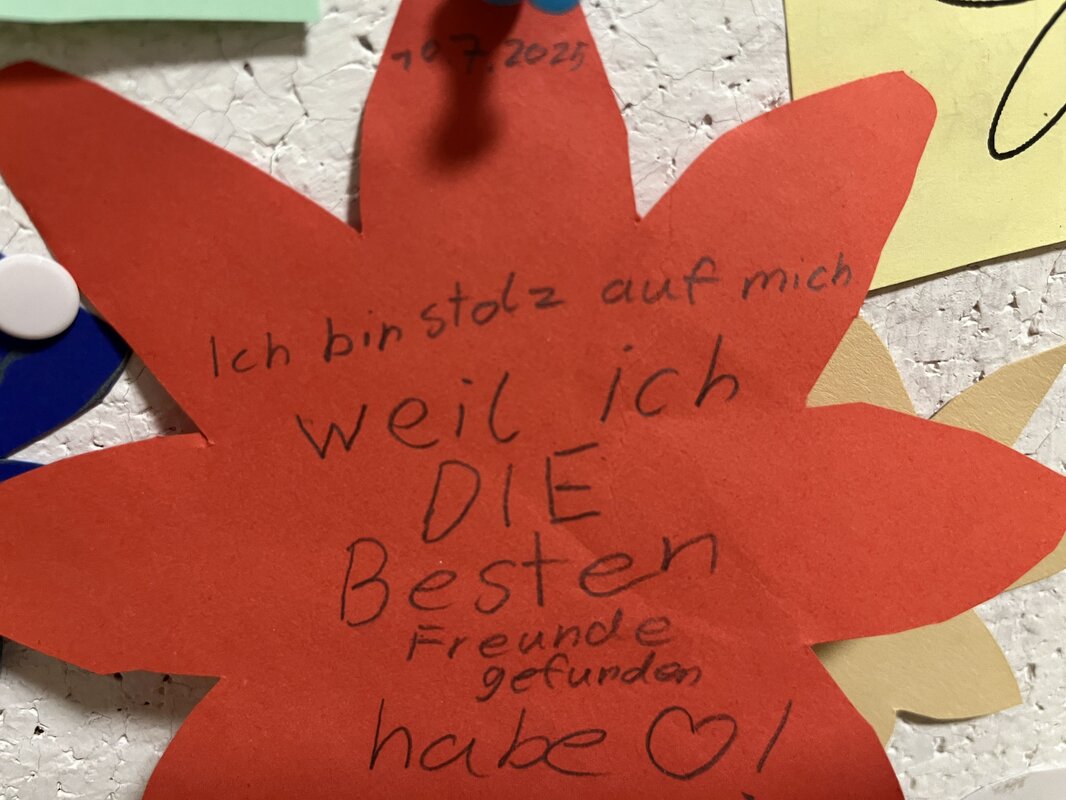 10.7.2025
Ich bin stolz auf mich
weil ich
DIE
Besten
Freunde
gefunden
habe ♡!